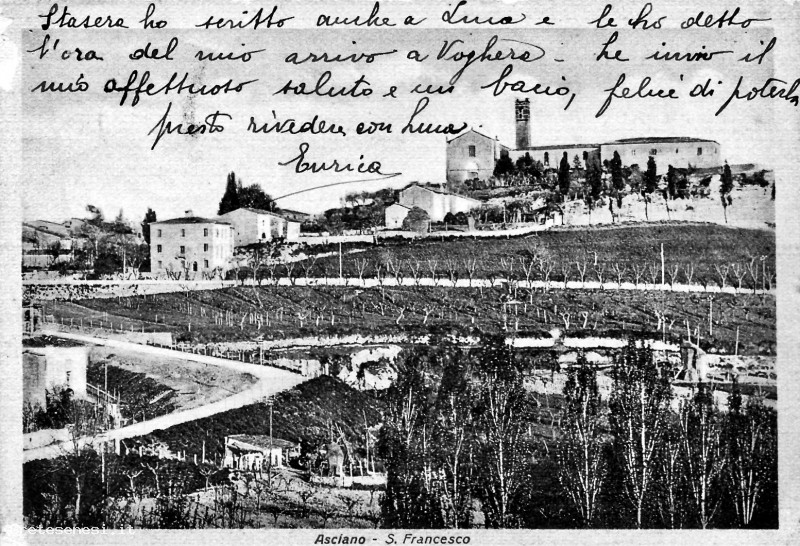 Stasera ho scritto anche a Luca e le ho detto
l'ora del mio arrivo a Voghera - Le invio il
mio affettuoso saluto e un bacio, felice di poterla
presto rivedere con Luca
Enrica
Asciano - S. Francesco
cretesenesi.it